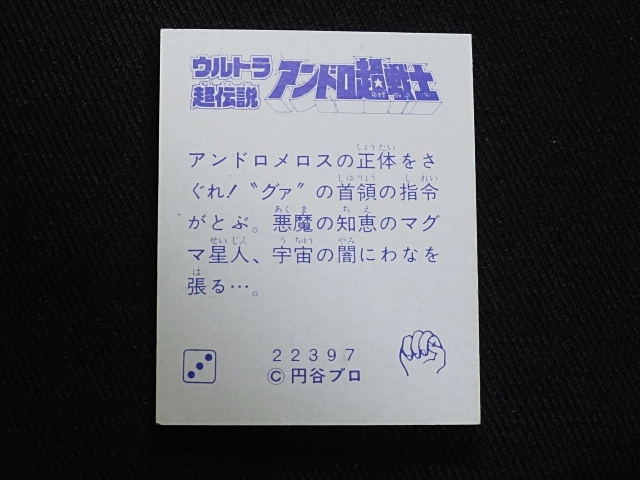 ウルトラ
超伝説
アンドロ超戦士
アンドロメロスの正体をさ
ぐれ!〝グァ〟の首領の指令
がとぶ。悪魔の知恵のマグ
マ星人、宇宙の闇にわなを
張る…。
22397
©円谷プロ